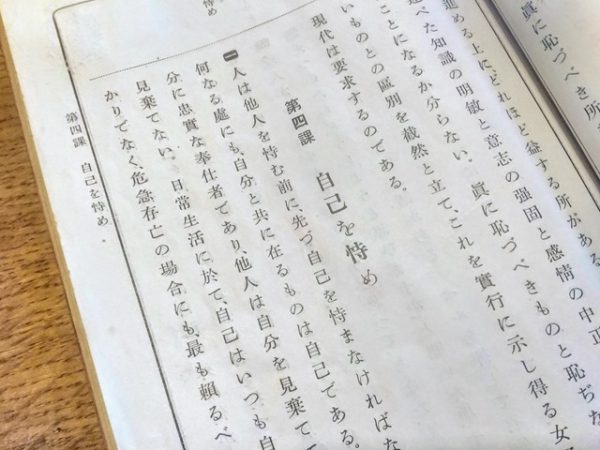 眞に恥づべき所
進める上にどれほど益する所がある
述べた知識の明敏と意志の強固と感情の中正
ことになるか分らない。眞に恥づべきものと恥ぢな
いものとの區別を截然と立て、これを實行に示し得る女
現代は要求するのである。
第四課 自己を恃め
一 人は他人を恃む前に、先づ自己を恃まなければな
何なる處にも、自分と共に在るものは自己である。
分に忠實な奉仕者であり、他人は自分を見棄て
見棄てない。日常生活に於て、自己はいつも自
かりでなく、危急存亡の場合にも、最も頼るべ
を恃め
第四課 自己を恃め